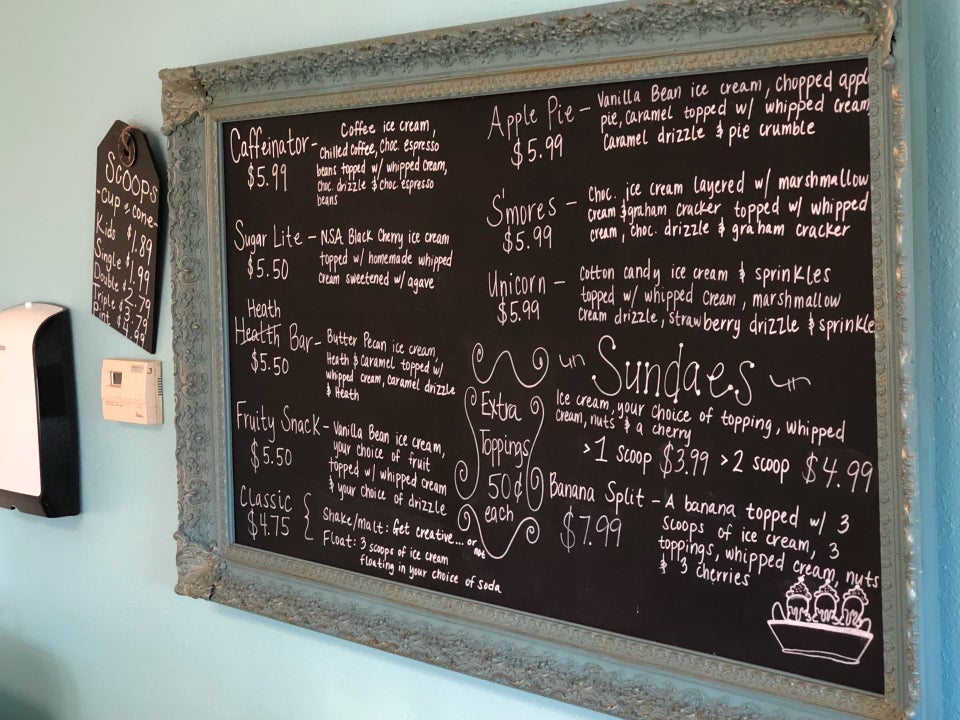 Scoops
-cup & cone-
Kids $1.89
Single $1.99
Double $2.79
Triple $3.79
Pint $4.99
Caffeinator- Coffee ice cream,
$5.99 Chilled Coffee, choc. espresso
beans topped w/ whipped cream,
choc. drizzle & choc. espresso
beans
Sugar Lite - N.S.A. Black Cherry ice cream
$5.50 topped w/ homemade whipped
cream sweetened w/ agave
Heath
Health Bar- Butter Pecan ice cream,
$5.50 Heath & Caramel topped w/
whipped cream, caramel drizzle
& Heath
Fruity Snack- Vanilla Bean ice cream,
$5.50 your choice of fruit
topped w/ whipped cream
& your choice of drizzle
Classic
$4.75
Shake/malt: Get creative... or not
Float: 3 scoops of ice cream
floating in your choice of soda
Apple Pie- Vanilla Bean ice cream, Chopped appl
$5.99 pie, caramel topped w/ whipped cream
Caramel drizzle & pie crumble
S'mores - Choc. ice cream layered w/ marshmallow
$5.99 cream & graham cracker topped w/ whipped
cream, choc. drizzle & graham cracker
Unicorn - Cotton candy ice cream & sprinkles
$5.99 topped w/ whipped cream, marshmallow
cream drizzle, strawberry drizzle & sprinkle
Extra
Toppings
50¢
each
Sundaes
Ice cream, your choice of topping, whipped
cream, nuts & a cherry
>1 scoop $3.99 >2 scoop $4.99
Banana Split - A banana topped w/ 3
$7.99 scoops of ice cream, 3
toppings, whipped cream, nuts
& 3 cherries